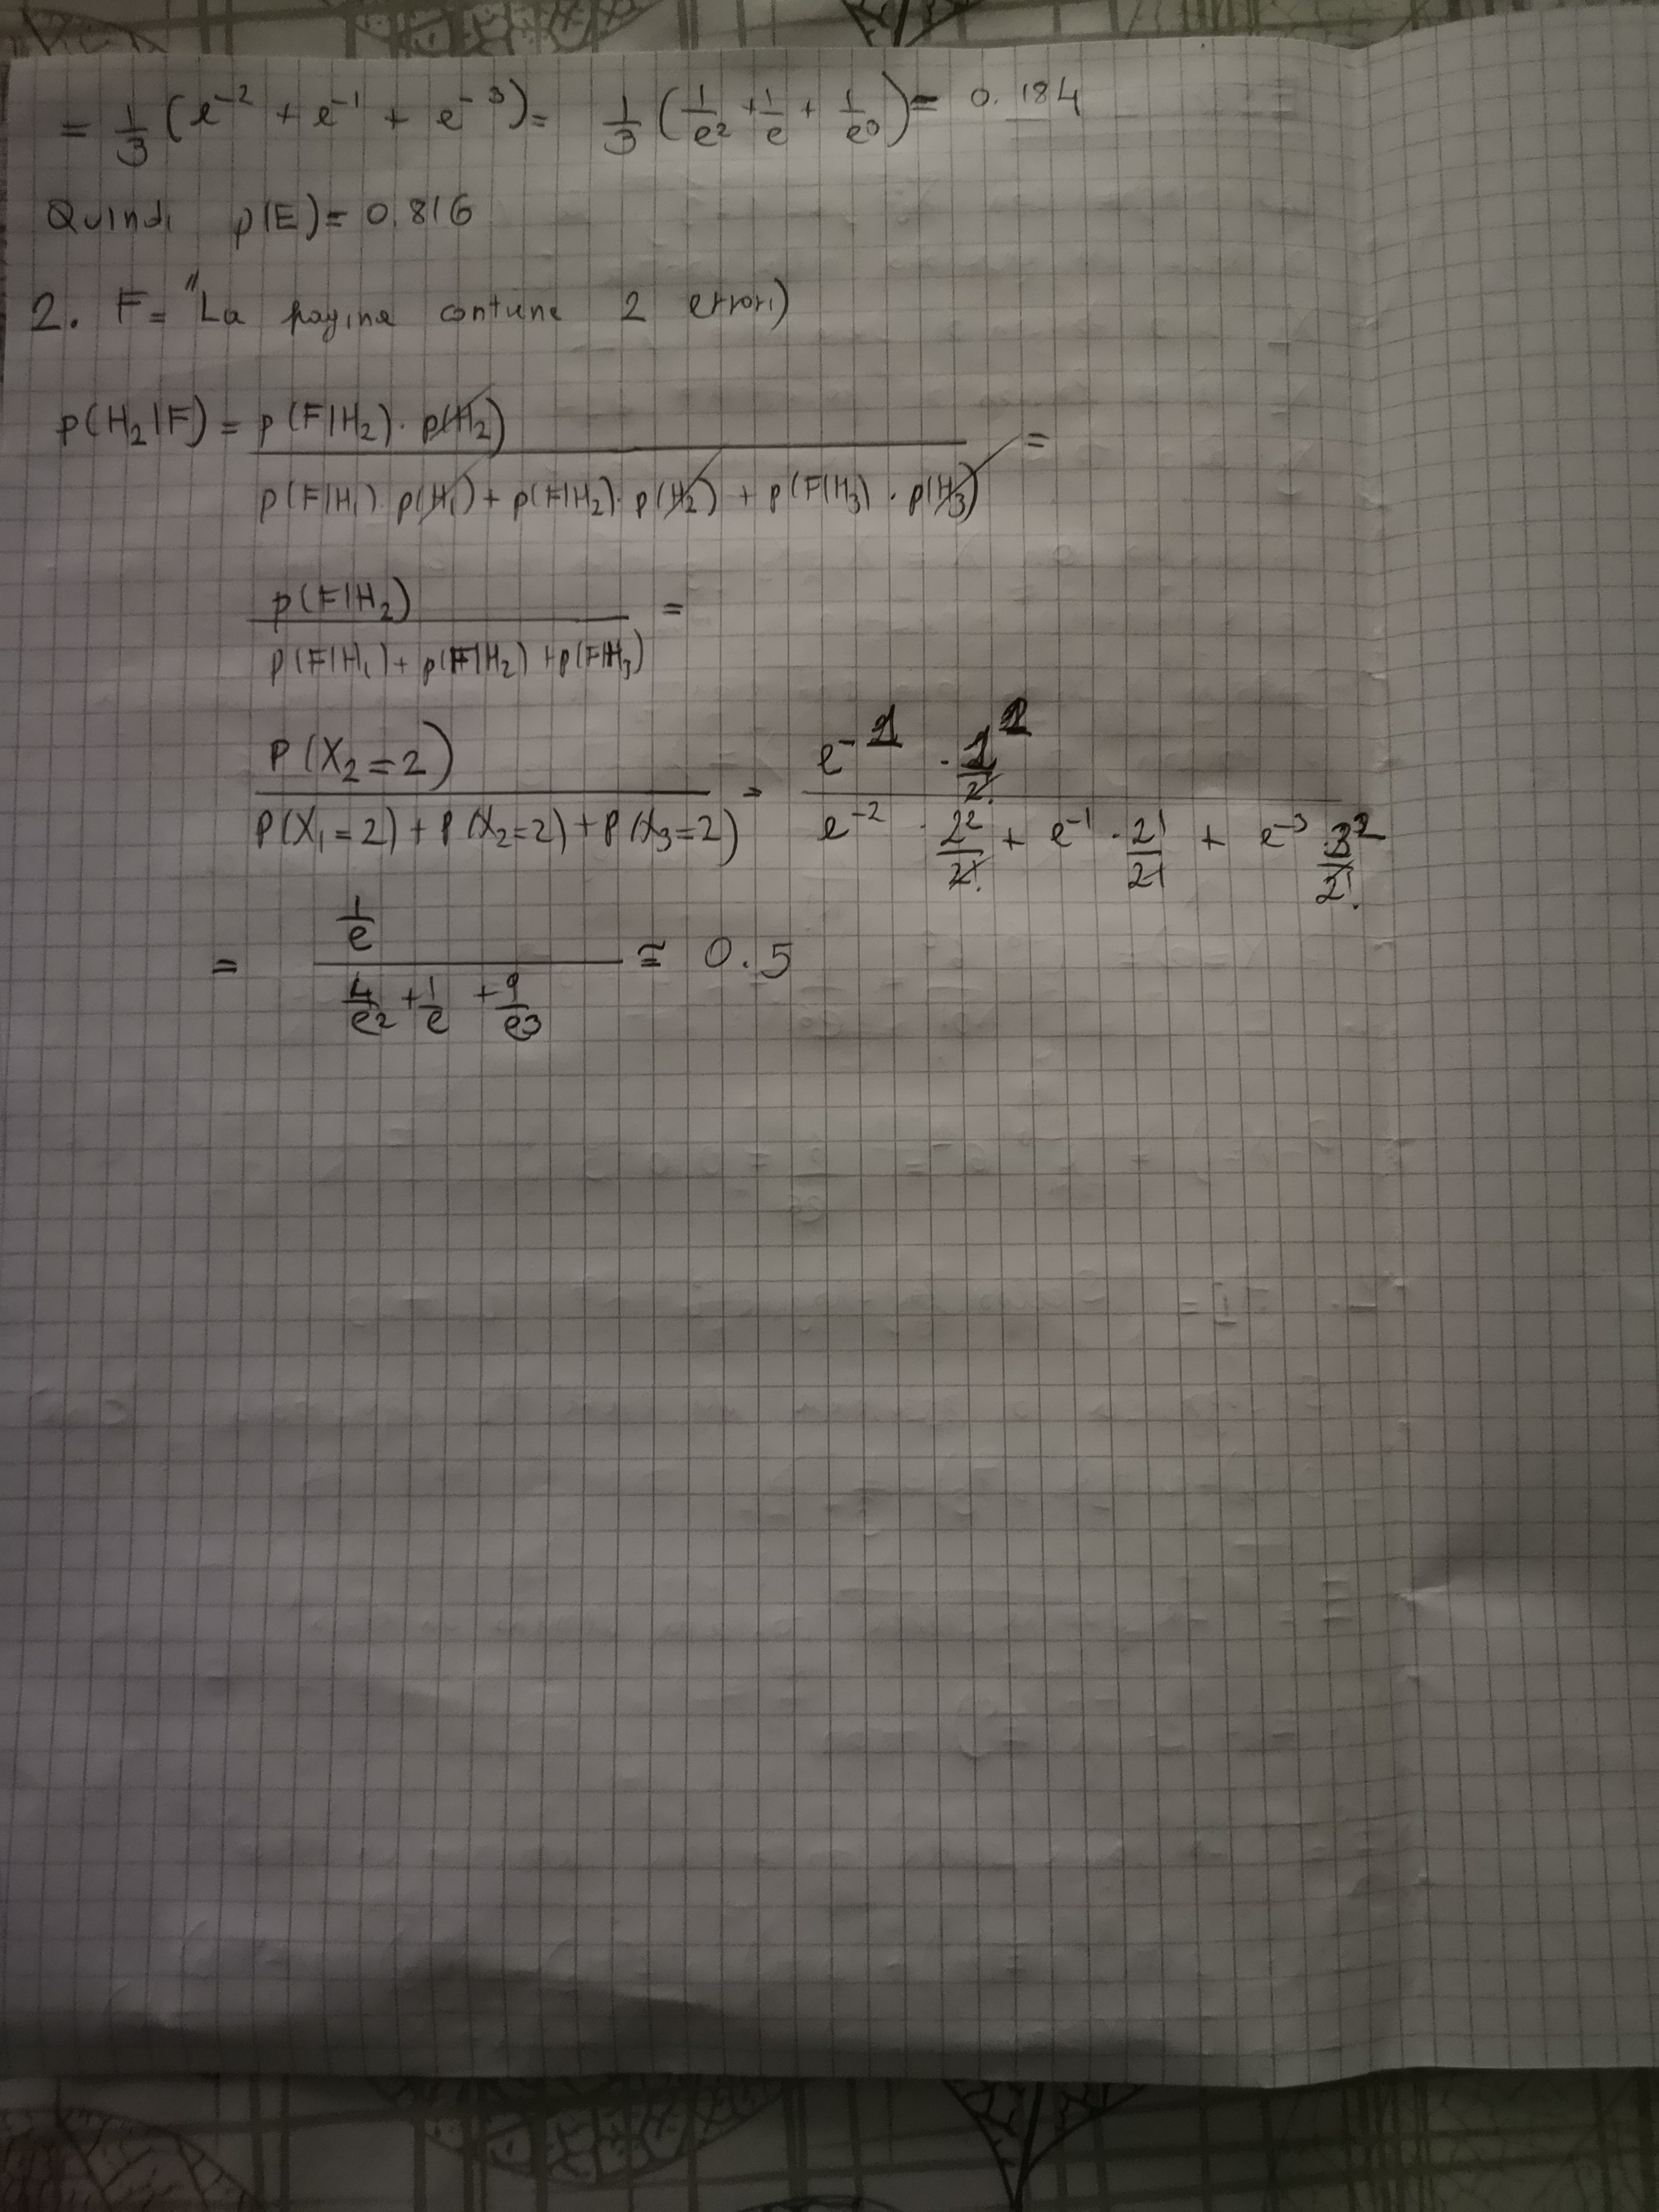 = 1/3 (e^-2 + e^-1 + e^-3) = 1/3 (1/e^2 + 1/e + 1/e^3) = 0.184
Quindi p(E) = 0.816
2. F = "La pagina contiene 2 errori)
p(H2|F) = p(F|H2) · p(H2) / p(F|H1) · p(H1) + p(F|H2) · p(H2) + p(F|H3) · p(H3) =
p(F|H2) / p(F|H1) + p(F|H2) + p(F|H3) =
P(X2=2) / P(X1=2) + P(X2=2) + P(X3=2) = e^-1 · 1^2/2! / e^-2 · 2^2/2! + e^-1 · 2^1/2! + e^-3 3^2/2!
= 1/e / 4/e^2 + 1/e + 9/e^3 ≅ 0.5